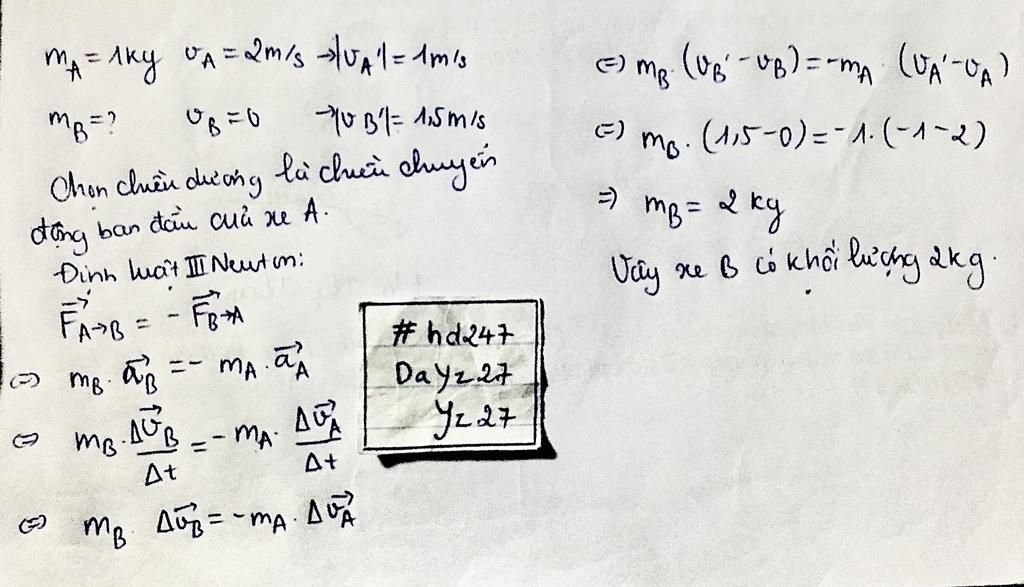 m_A = 1kg v_A = 2m/s →|v_A'| = 1m/s
m_B = ? v_B = 0 →|v_B'| = 1,5m/s
Chọn chiều dương là chiều chuyển
động ban đầu của xe A.
Định luật III Newton:
F⃗_A→B = - F⃗_B→A
⇔ m_B. a⃗_B = - m_A. a⃗_A
⇔ m_B. Δv⃗_B/Δt = - m_A. Δv⃗_A/Δt
⇔ m_B. Δv⃗_B = - m_A. Δv⃗_A
⇔ m_B. (v_B' - v_B) = - m_A. (v_A' - v_A)
⇔ m_B. (1,5 - 0) = - 1. (-1 - 2)
⇒ m_B = 2 kg
Vậy xe B có khối lượng 2kg.
# hd247
DaYz.27
Yz 27